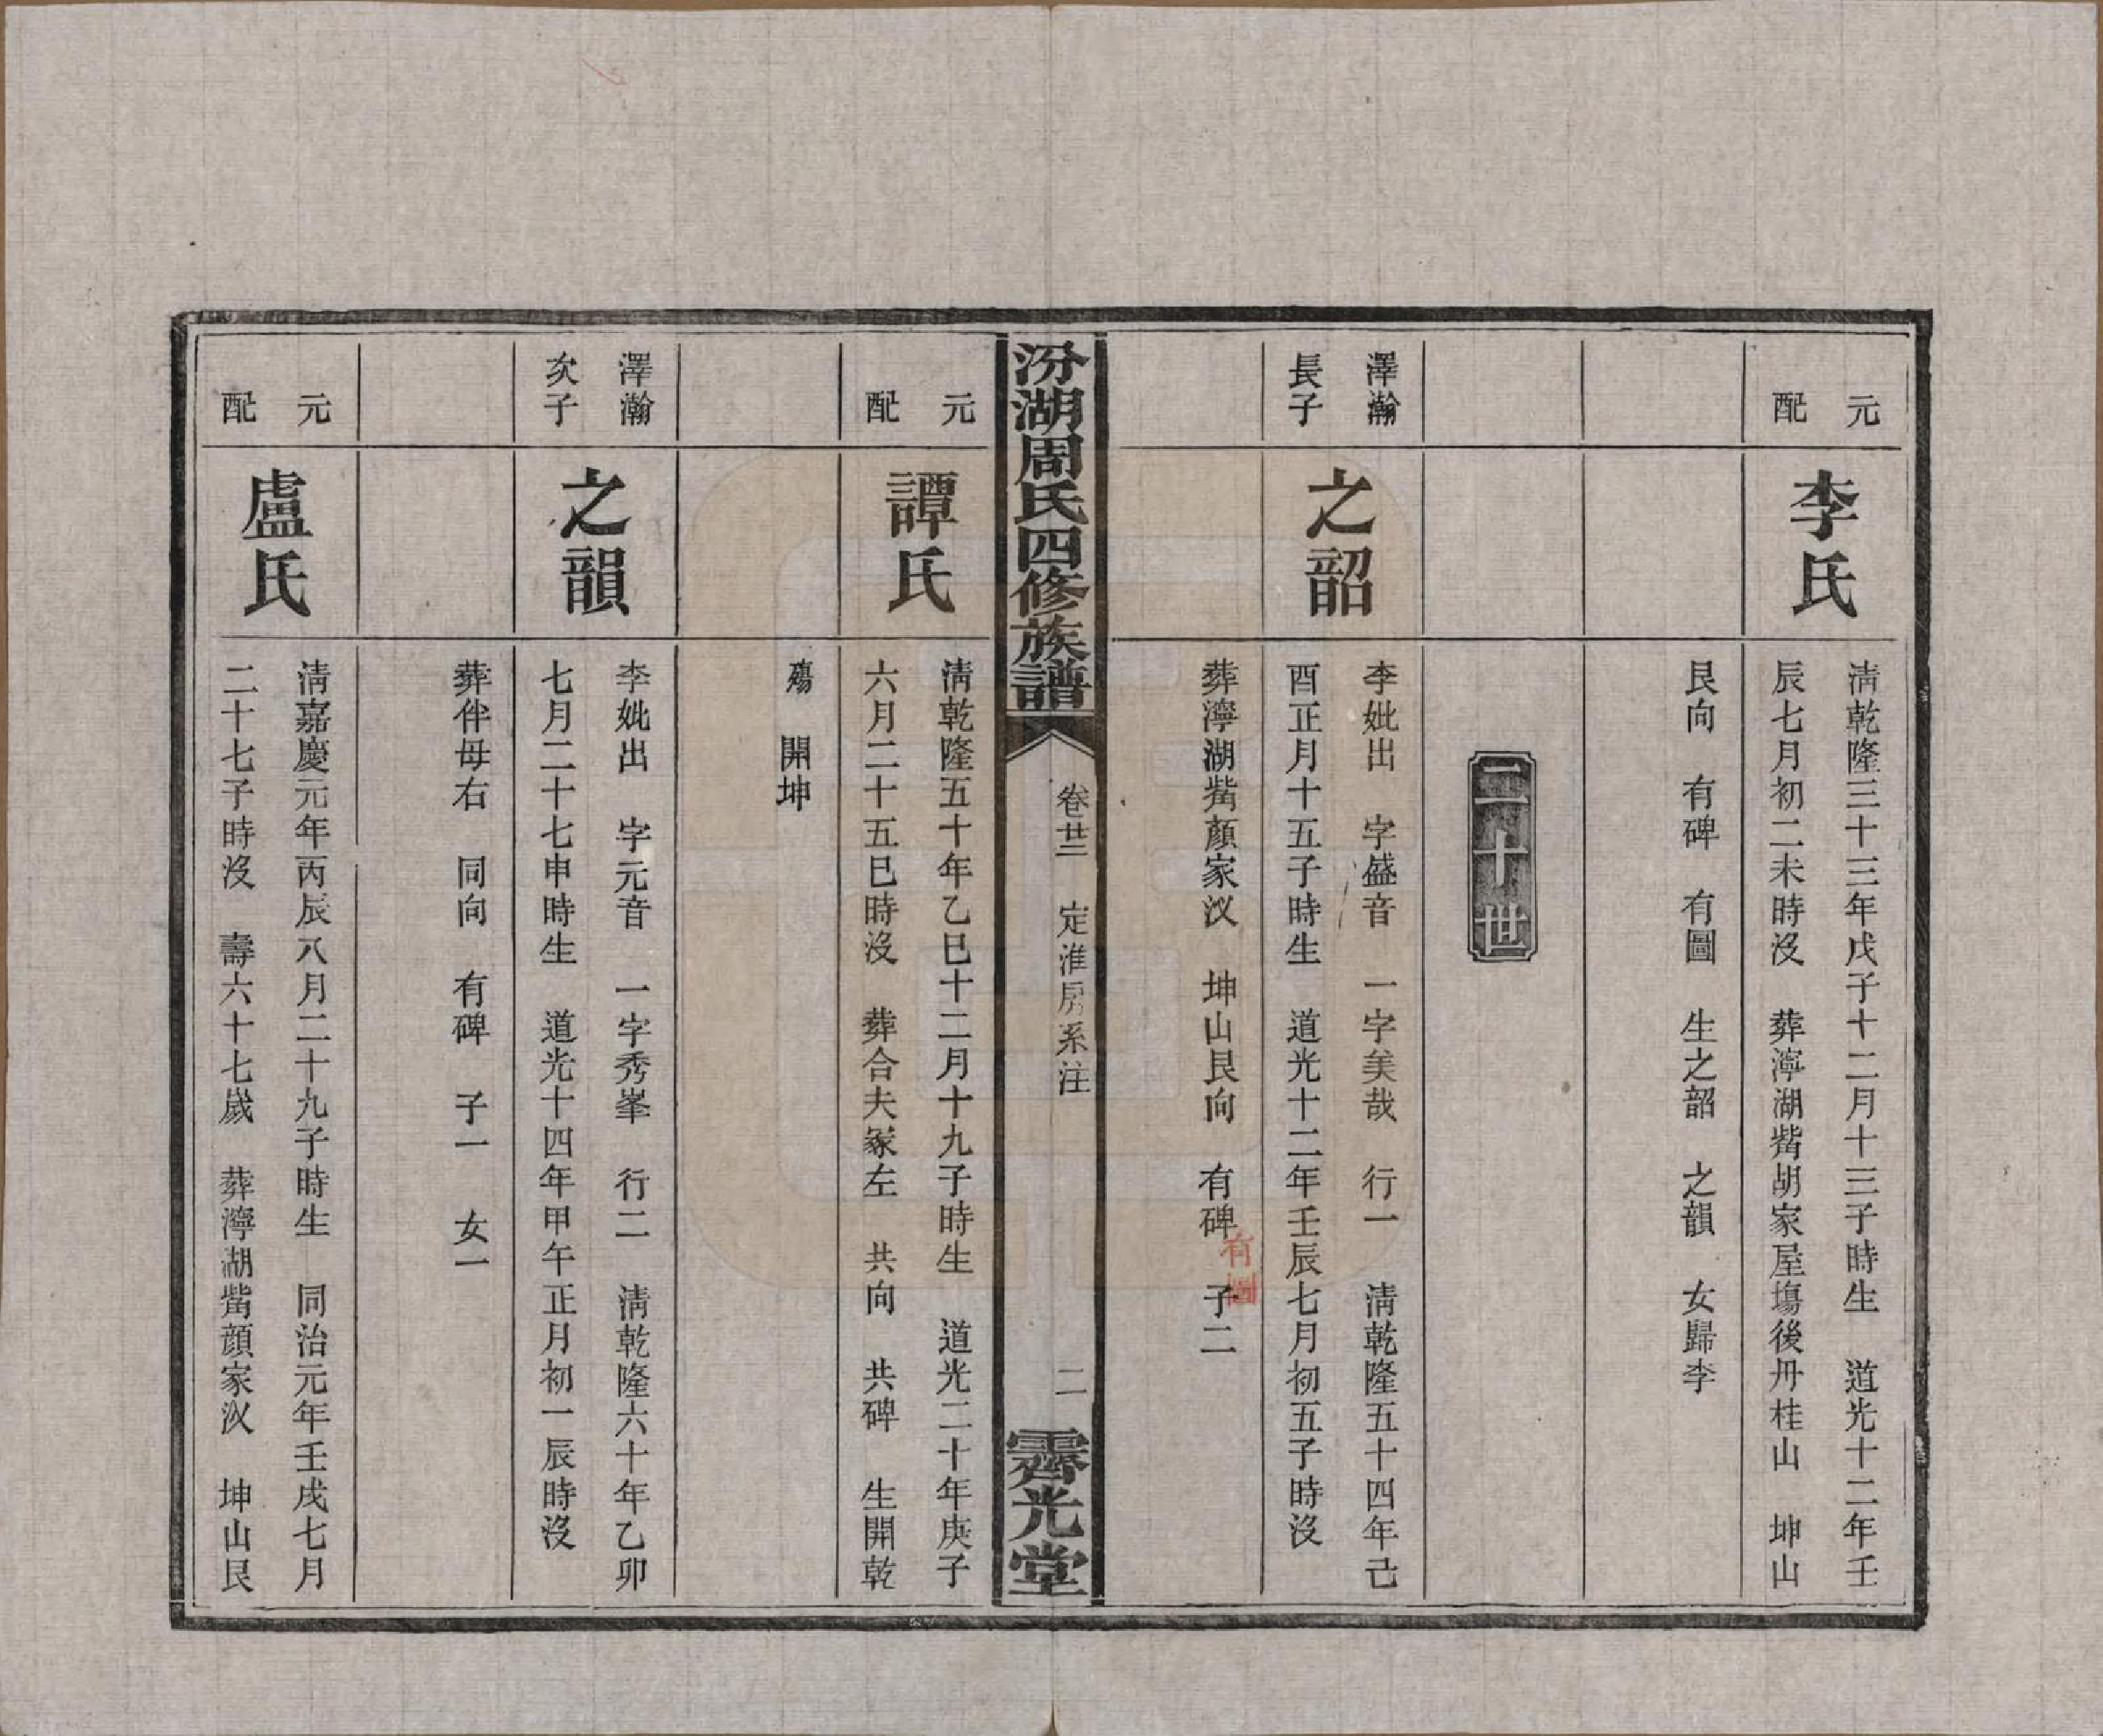 元
配
李氏
清乾隆三十三年戊子十二月十三子時生　道光十二年壬
辰七月初二未時沒　葬濘湖觜胡家屋塲後丹桂山　坤山
艮向　有碑　有圖　生之韶　之韻　女歸李
二十世
澤瀚
長子
之韶
李妣出　字盛音　一字美哉　行一　清乾隆五十四年己
酉正月十五子時生　道光十二年壬辰七月初五子時沒
葬濘湖觜顏家汊　坤山艮向　有碑　子二
有圖
汾湖周氏四修族譜
卷廿三　定淮房系注
二
霽光堂
元
配
譚氏
清乾隆五十年乙巳十二月十九子時生　道光二十年庚子
六月二十五巳時沒　葬合夫冢左　共向　共碑　生開乾
殤　開坤
澤瀚
次子
之韻
李妣出　字元音　一字秀峯　行二　清乾隆六十年乙卯
七月二十七申時生　道光十四年甲午正月初一辰時沒
葬伴母右　同向　有碑　子一　女一
元
配
盧氏
清嘉慶元年丙辰八月二十九子時生　同治元年壬戌七月
二十七子時沒　壽六十七歲　葬濘湖觜顏家汊　坤山艮